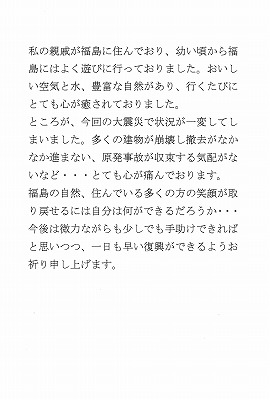 私の親戚が福島に住んでおり、幼い頃から福
島にはよく遊びに行っておりました。おいし
い空気と水、豊富な自然があり、行くたびに
とても心が癒されておりました。
ところが、今回の大震災で状況が一変してし
まいました。多くの建物が崩壊し撤去がなか
なか進まない、原発事故が収束する気配がな
いなど・・・とても心が痛んでおります。
福島の自然、住んでいる多くの方の笑顔が取
り戻せるには自分は何ができるだろうか・・・
今後は微力ながらも少しでも手助けできれば
と思いつつ、一日も早い復興ができるようお
祈り申し上げます。